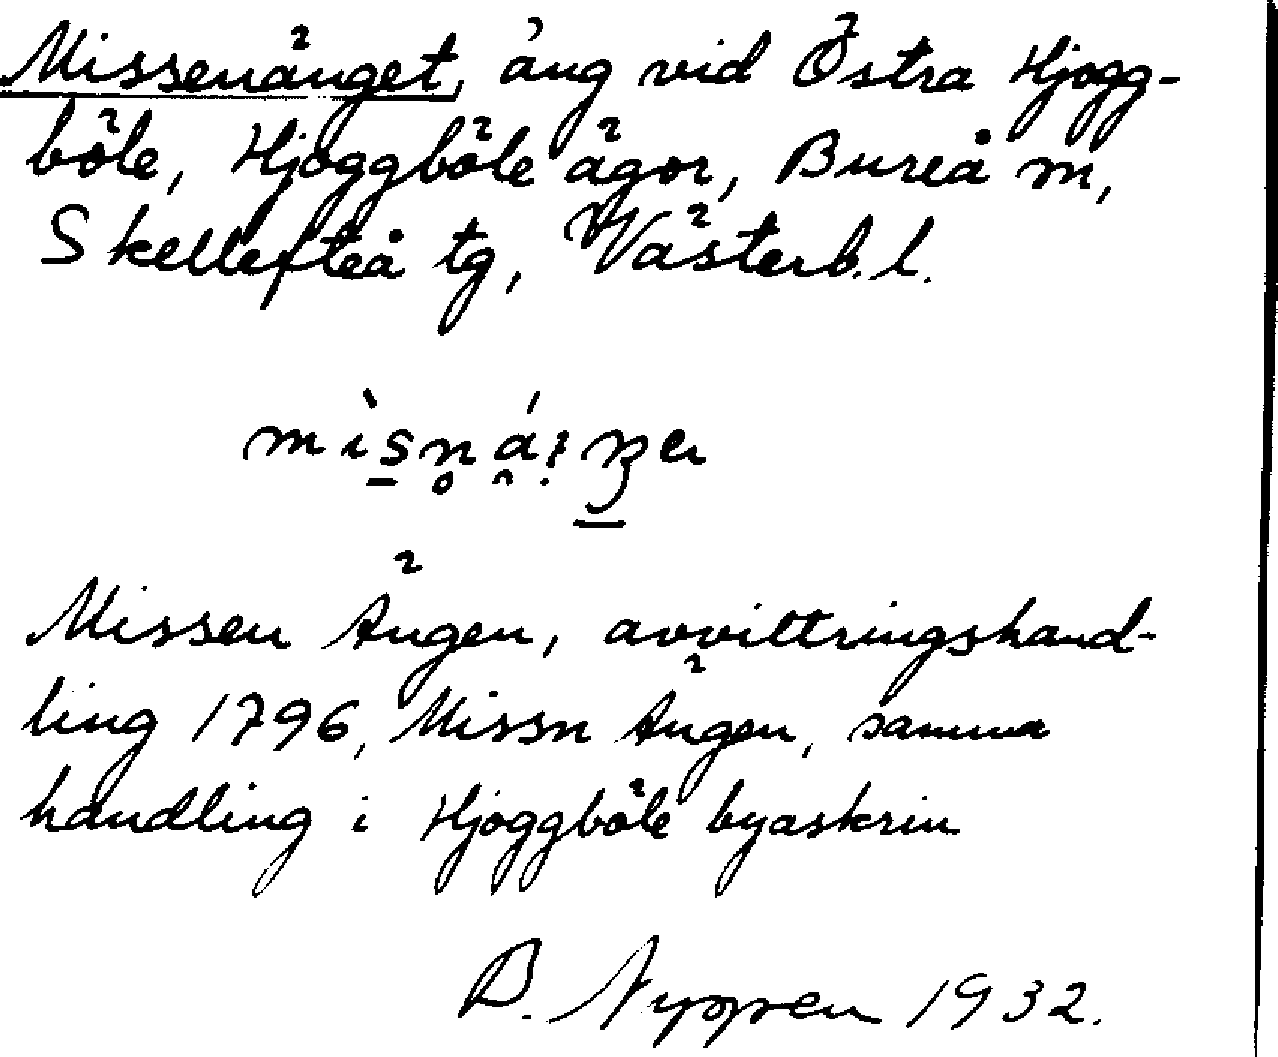 Missenänget, äng vid Östra Hjogg-
böle, Hjoggböle ägor, Bureå sn,
Skellefteå tg, Västerb. l.
Missen Ängen, avvittringshand-
ling 1796, Missn Ängen, samma
handling i Hjoggböle byaskrin
1932.